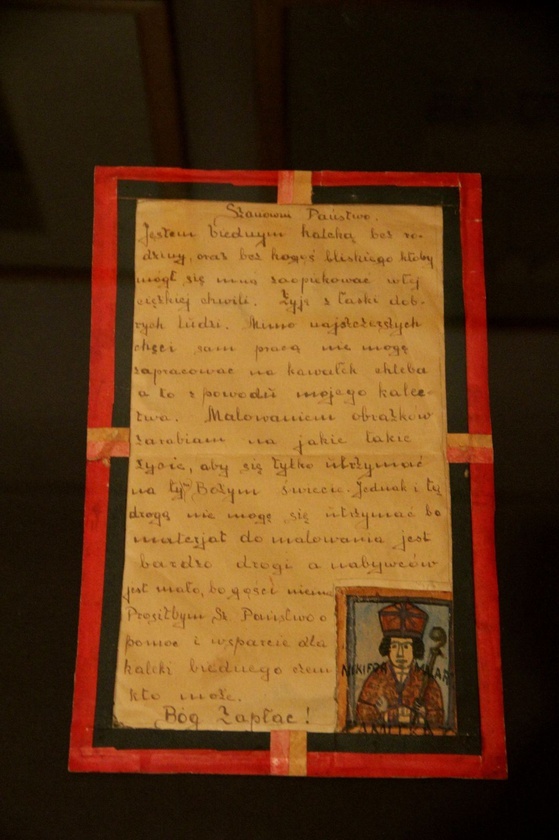 Szanowni Państwo.
Jestem biednym kaleką bez ro-
dziny, oraz bez kogoś bliskiego ktoby
mógł się mną zaopiekować w tej
ciężkiej chwili. Żyję z łaski dob-
rych ludzi. Mimo najszczeszłych
chęci sam pracą nie mogę
zapracować na kawałek chleba
a to z powodu mojego kalec-
twa. Malowaniem obrazków
zarabiam na jakie takie
życie, aby się tylko utrzymać
na tym Bożym świecie. Jednak i tą
drogą nie mogę się utrzymać bo
materjał do malowania jest
bardzo drogi a nabywców
jest mało, bo gości niema
Prosiłbym Sz. Państwo o
pomoc i wsparcie dla
kaleki biednego czem
kto może.
Bóg Zapłać!
NIKIFOR MALAR